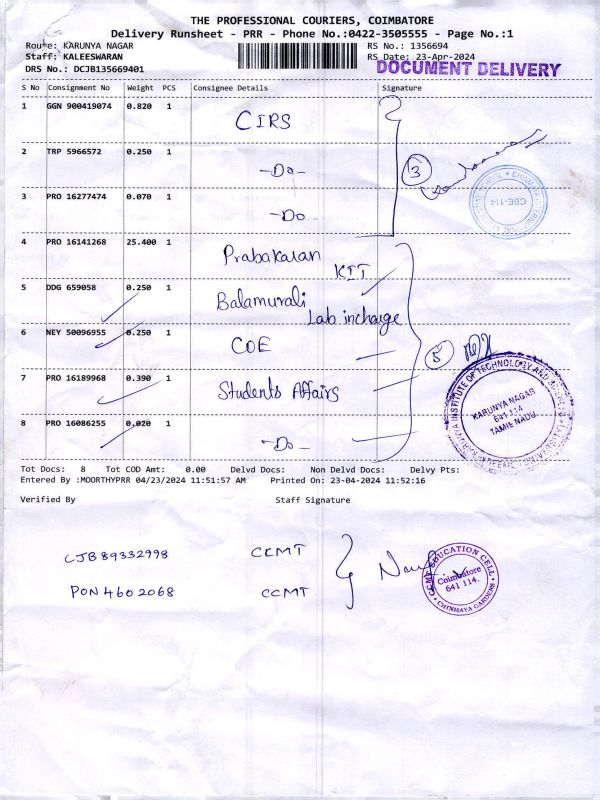 THE PROFESSIONAL COURIERS, COIMBATORE
Delivery Runsheet - PRR - Phone No.:0422-3505555 - Page No.:1
Route: KARUNYA NAGAR RS No.: 1356694
Staff: KALEESWARAN RS Date: 23-Apr-2024
DRS No.: DCJB135669401 DOCUMENT DELIVERY
S No Consignment No Weight PCS Consignee Details Signature
1 GGN 900419074 0.820 1 CIRS
2 TRP 5966572 0.250 1 -Do-
3
CBE-114
3 PRO 16277474 0.070 1 -Do-
4 PRO 16141268 25.400 1 Prabakaran KIT
5 DDG 659058 0.250 1 Balamurali Lab incharge
6 NEY 50096955 0.250 1 COE
5
7 PRO 16189968 0.390 1 Students Affairs
KARUNYA INSTITUTE OF TECHNOLOGY AND
KARUNYA NAGAR
641 114
TAMIL NADU
8 PRO 16086255 0.020 1 -Do-
Tot Docs: 8 Tot COD Amt: 0.00 Delvd Docs: Non Delvd Docs: Delvy Pts:
Entered By :MOORTHYPRR 04/23/2024 11:51:57 AM Printed On: 23-04-2024 11:52:16
Verified By Staff Signature
CJB 89332998 CCMT
PON 460 2068 CCMT
CCMT EDUCATION CELL
Coimbatore
641 114.
CHINMAYA GARDENS